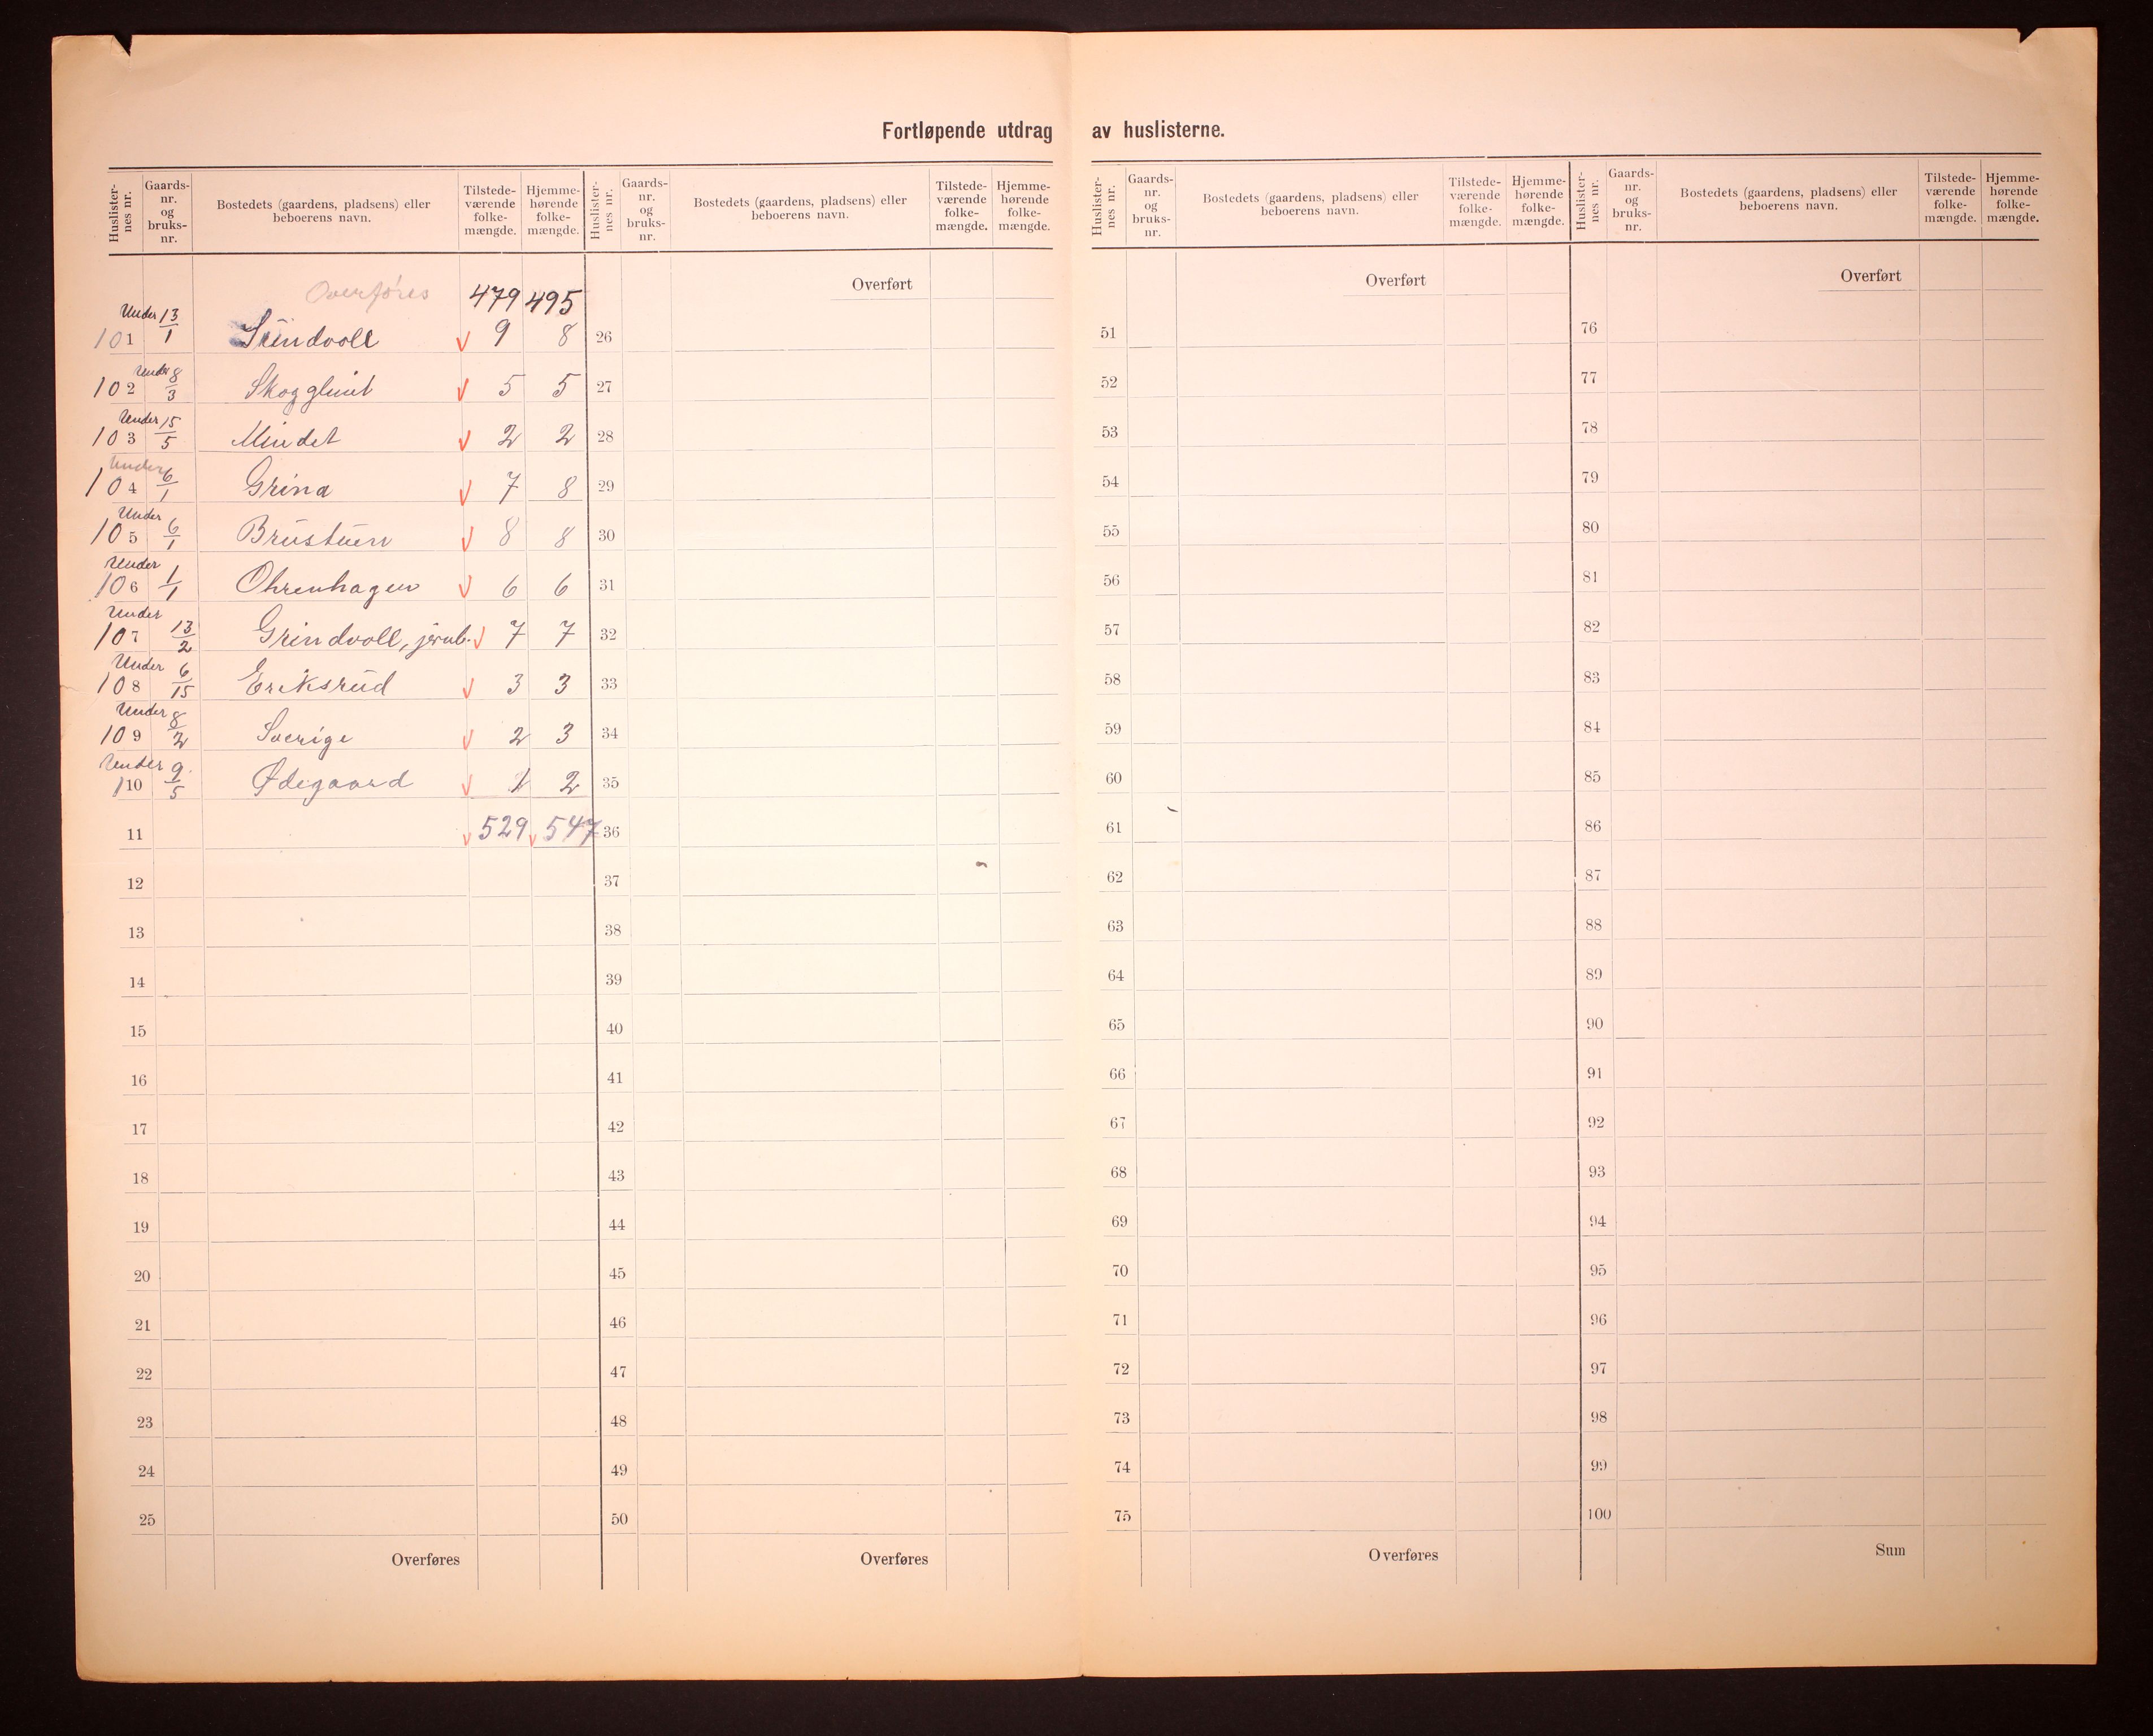 Fortløpende utdrag av huslisterne.
Huslister-nes nr. Gaards-nr. og bruks-nr. Bostedets (gaardens, pladsens) eller beboerens navn. Tilstede-værende folke-mængde. Hjemme-hørende folke-mængde.
Overføres 479 495
101 Under 13/1 9 8
102 Under 8/3 Skogglimt 5 5
103 Under 15/5 Mindet 2 2
104 Under 6/1 Grina 7 8
105 Under 6/1 Brustuen 8 8
106 Under 1/1 Ohrenhagen 6 6
107 Under 13/2 Grindvoll, jernb. 7 7
108 Under 6/15 Eriksrud 3 3
109 Under 8/2 Sverige 2 3
110 Under 9/5 Ødegaard 1 2
11 529 547
12
13
14
15
16
17
18
19
20
21
22
23
24
25
Overføres
Huslister-nes nr. Gaards-nr. og bruks-nr. Bostedets (gaardens, pladsens) eller beboerens navn. Tilstede-værende folke-mængde. Hjemme-hørende folke-mængde.
Overført
26
27
28
29
30
31
32
33
34
35
36
37
38
39
40
41
42
43
44
45
46
47
48
49
50
Overføres
Huslister-nes nr. Gaards-nr. og bruks-nr. Bostedets (gaardens, pladsens) eller beboerens navn. Tilstede-værende folke-mængde. Hjemme-hørende folke-mængde.
Overført
51
52
53
54
55
56
57
58
59
60
61
62
63
64
65
66
67
68
69
70
71
72
73
74
75
Overføres
Huslister-nes nr. Gaards-nr. og bruks-nr. Bostedets (gaardens, pladsens) eller beboerens navn. Tilstede-værende folke-mængde. Hjemme-hørende folke-mængde.
Overført
76
77
78
79
80
81
82
83
84
85
86
87
88
89
90
91
92
93
94
95
96
97
98
99
100
Sum